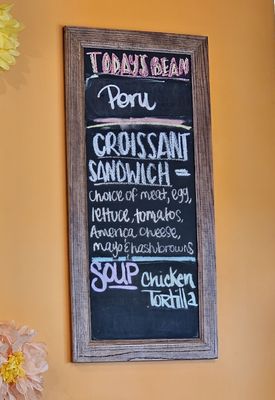 TODAY'S BEAN
Peru
CROISSANT
SANDWICH -
choice of meat, egg,
lettuce, tomatos,
America cheese,
mayo & hashbrowns
SOUP Chicken
Tortilla